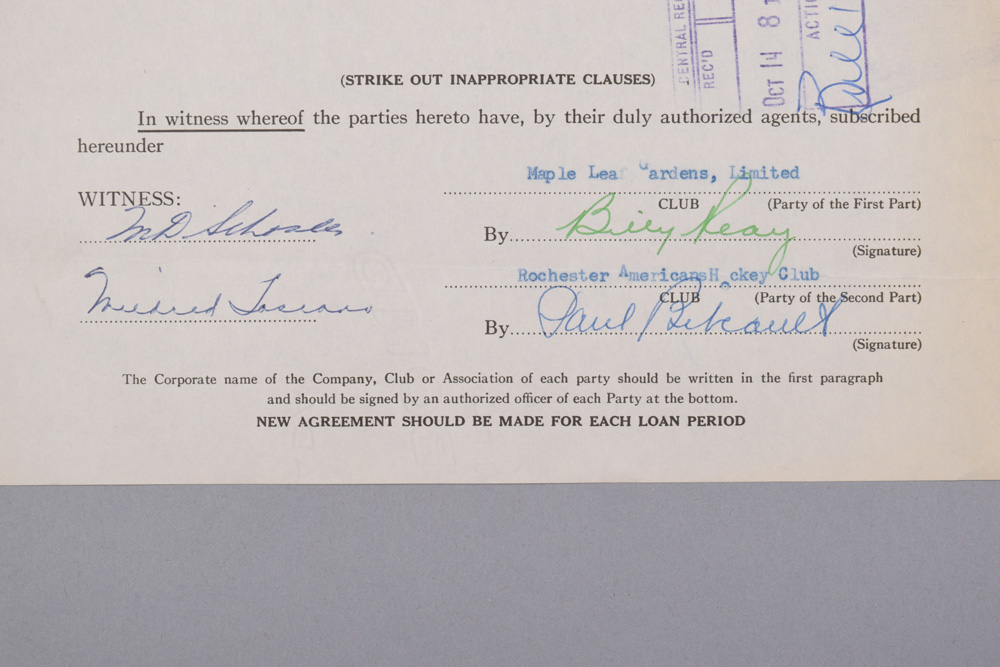 CENTRAL RE
REC'D
OCT 14 81
ACTIO
(STRIKE OUT INAPPROPRIATE CLAUSES)
In witness whereof the parties hereto have, by their duly authorized agents, subscribed
hereunder
Maple Lea Gardens, Limited
WITNESS:
CLUB (Party of the First Part)
By Billy Reay
(Signature)
Rochester Americans H ckey Club
Mildred
CLUB (Party of the Second Part)
By Paul Bibeault
(Signature)
The Corporate name of the Company, Club or Association of each party should be written in the first paragraph
and should be signed by an authorized officer of each Party at the bottom.
NEW AGREEMENT SHOULD BE MADE FOR EACH LOAN PERIOD